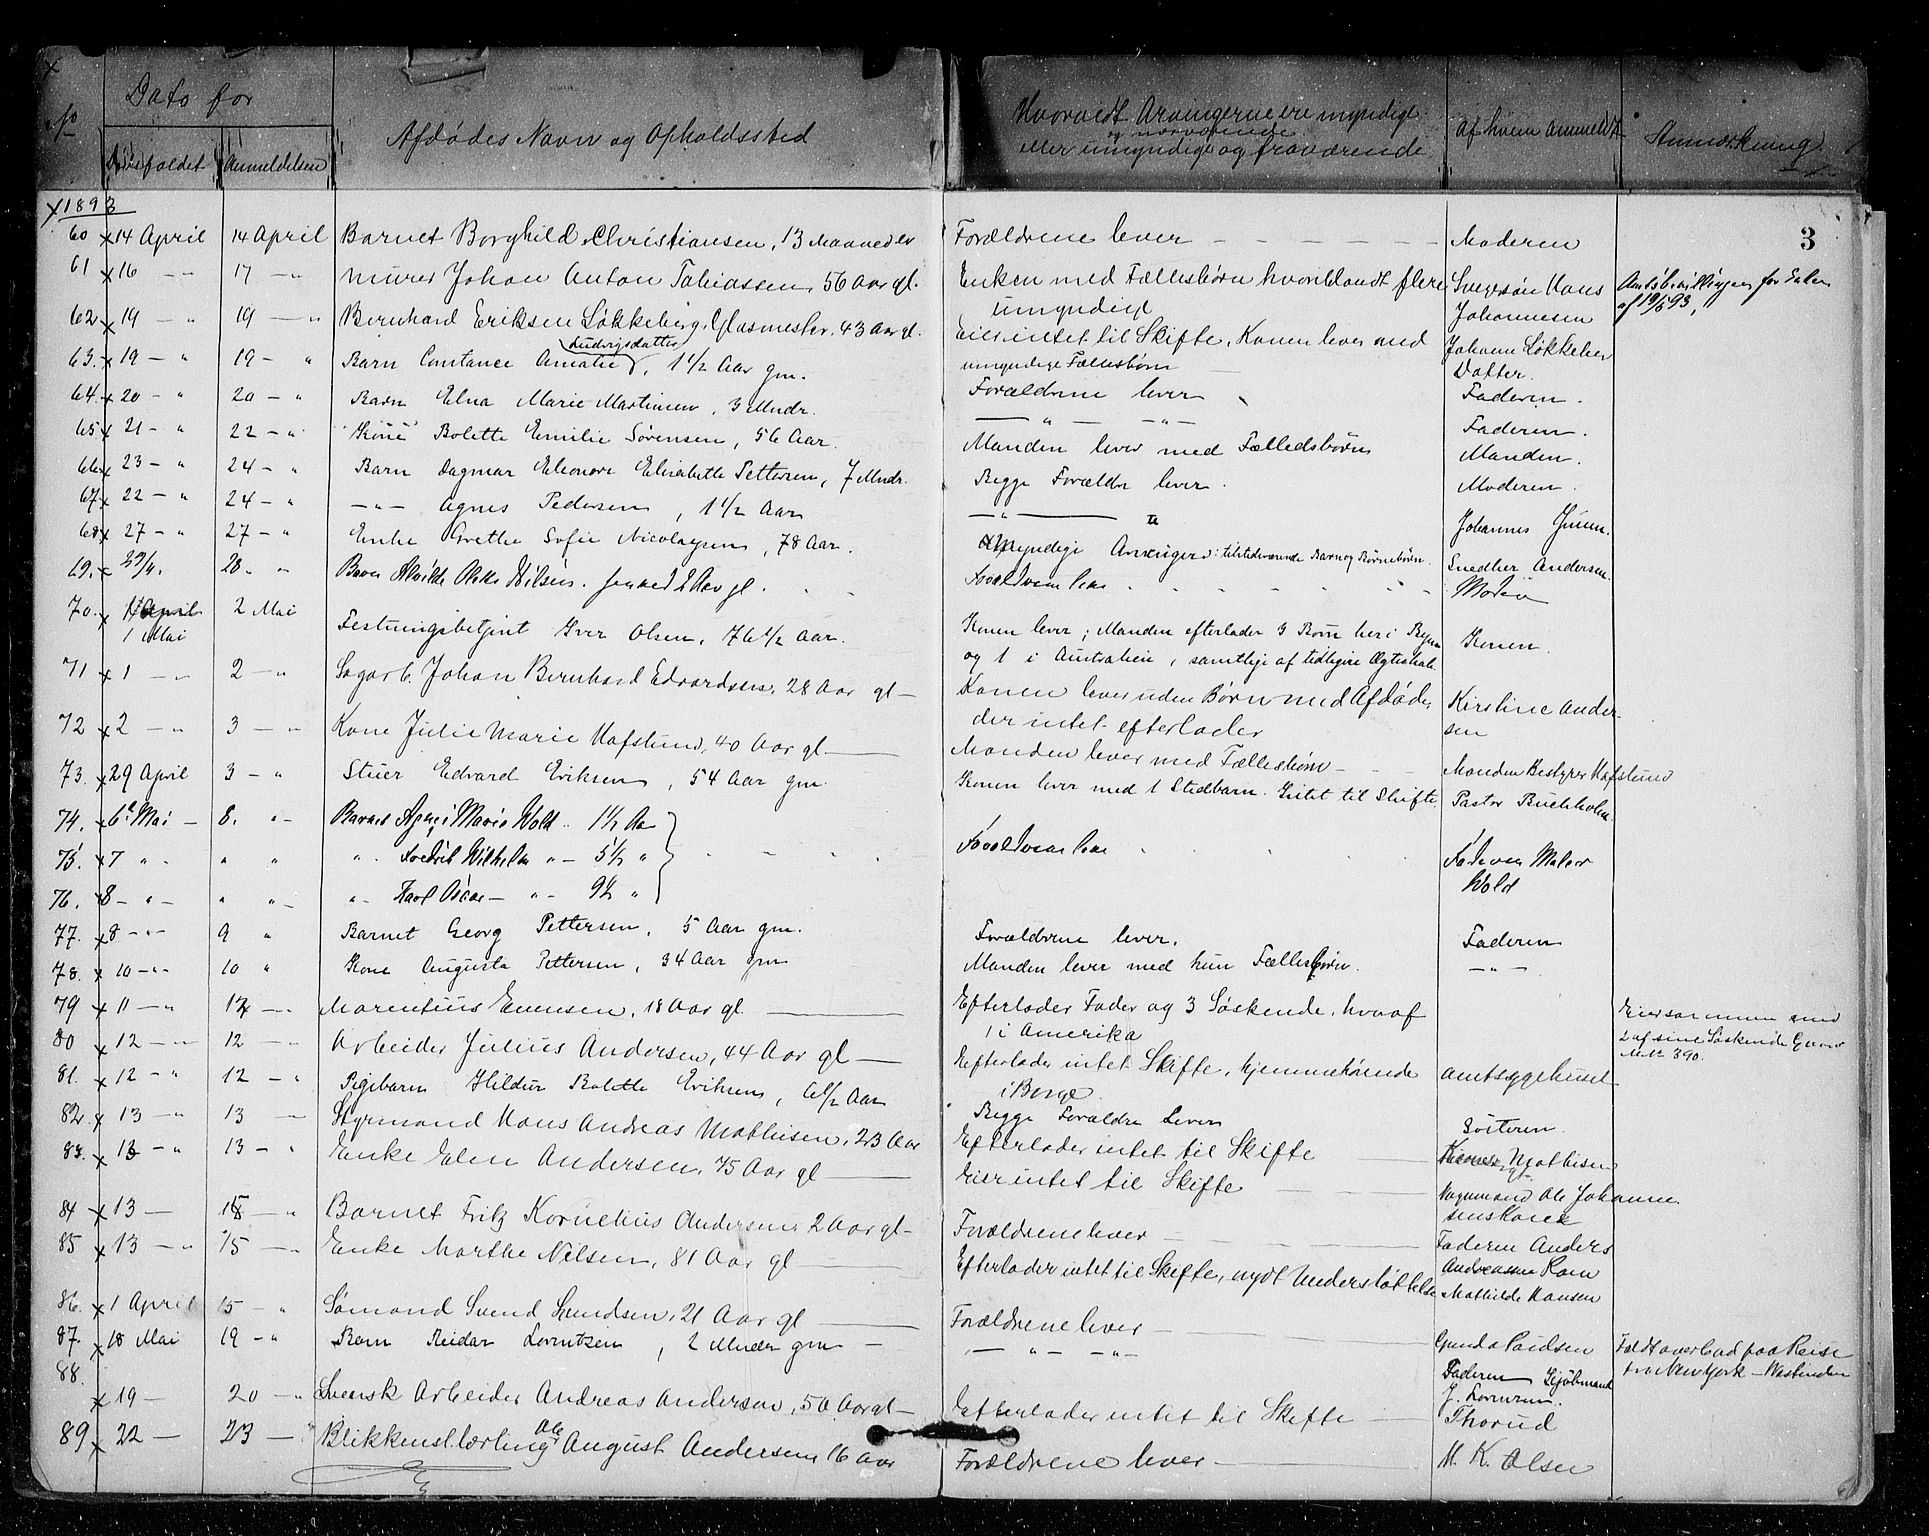 No
Dato for
Dødsfaldet
Anmeldelsen
Afdødes Navn og Opholdssted
Hvorvidt Arvingerne ere myndige
og nærværende
eller umyndige og fraværende
Af hvem anmeldt
Anmærkning
3
1893
60 14 April 14 April Barnet Borghild Christiansen, 13 Maaneder Forældrene lever Moderen
61 16 — " 17 — " Murer Johan Anton Tobiassen, 56 Aar gl. Enken med Fællesbørn hvoriblandt flere Svigersøn Hans
umyndige Johannesen af 19/5 93,
62 19 — " 19 — " Bernhard Eriksen Løkkeberg, Glasmester, 43 Aar gl. Eier intet til Skifte, Konen lever med Johanne Løkkeber
umyndige Fællesbørn Datter.
63. 19 — " 19 — " Barn Constance Amalie Ludvigsdatter, 1 1/2 Aar gm. Forældrene lever Faderen.
64. 20 — " 20 — " Barn Elna Marie Martinsen, 3 Mndr. — " — — " — Faderen.
65 21 — " 22 — " Kone Bolette Emilie Sørensen, 56 Aar. Manden lever med Fælledsbørn Manden.
66 23 — " 24 — " Barn Dagmar Eleonore Elisabeth Pettersen, 7 Mndr. Begge Forældre lever. Moderen.
67. 22 — " 24 — " — " — Agnes Pedersen, 1 1/2 Aar — " — " Johannes
68 27 — " 27 — " Enke Grethe Sofie Nicolaysen, 78 Aar. Myndige Arvinger: tilstedeværende Barn og Børnebørn. Snedker Andersen.
69. 27/4. 28. " Barnet Olsen 2 Aar gl. Forældrene lever Moder
70. 1 Mai 2 Mai Festningsbetjent Iver Olsen, 76 1/2 Aar. Konen lever; Manden efterlader 3 Børn her i Byen
og 1 i Australien, samtlige af tidligere Ægteskab. Konen.
71 1 — " 2 — " Sagarb. Johan Bernhard Edvardsen, 28 Aar gl — Konen lever uden Børn med Afdøde,
der intet efterlader Kirstine Ander-
sen
72 2 — " 3 — " Kone Julie Marie Hafslund, 40 Aar gl. — Manden lever med Fællesbørn — Manden Bestyrer Hafslund
73. 29 April 3 — " Stuer Edvard Eriksen, 54 Aar gm. Konen lever med 1 Stedbarn. Intet til Skifte. Pastor Buchholm
74. 6 Mai — 8. " — Barnet Agnes Marie Wold 1 1/2 Aar
75 7 " " " " " Fredrik Wilhelm " — 5 1/2 " Forældrene lever Faderen Maler
Wold
76. 8 — " — " " — " Karl Oscar — " — 9 1/2 "
77. 8 — " — 9 " Barnet Georg Pettersen, 5 Aar gm. Forældrene lever. Faderen
78. 10 — " — 10 " Kone Augusta Pettersen, 34 Aar gm Manden lever med kun Fællesbørn. — " —
79 11 — " 12 — " Marentius Evensen, 18 Aar gl. Efterlader Fader og 3 Søskende, hvoraf
1 i Amerika Eier sammen med
2 af sine Søskende Gaard
M.No 390.
80 12 — " 12 — " Arbeider Julius Andersen, 44 Aar gl — Efterlader intet Skifte, hjemmehørende
i Borge Amtsygehuset
81. 12 — " 12 — " Pigebarn Hildur Bolette Eriksen, 6 1/2 Aar Begge Forældre Lever Søsteren.
82. 13 — " 13 — " Styrmand Hans Andreas Mathisen, 23 Aar Efterlader intet til Skifte Mathisen
83. 13 — " 13 — " Enke Elen Andersen, 75 Aar gl — Eier intet til Skifte Vognmand Ole Johanne-
sens Kone
84 13 — 15 — " Barnet Fritz Kornelius Andersen, 2 Aar gl — Forældrene lever — Faderen Anders
Andreasen
85 13 — " 15 — " Enke Marthe Nilsen, 81 Aar gl — Efterlader intet til Skifte, nydt Understøttelse Mathilde Hansen
86. 1 April 15 — " Sømand Svend Svendsen, 21 Aar gl — Forældrene lever — Gunda Paulsen Faldt overbord paa Reise
fra New York — Vestindien
87. 18 Mai 19 — " Barn Reidar Lorentzen, 2 Mndr gm — — " — — " — Faderen Kjøbmand
J. Lorentzen.
88. 19 — 20 — " Svensk Arbeider Andreas Andersen, 50 Aar gl — Efterlader intet til Skifte — Thorud
89 22 — 23 — " Blikkensl. lærling Ole August Andersen 16 Aar Forældrene lever — M. K. Olsen